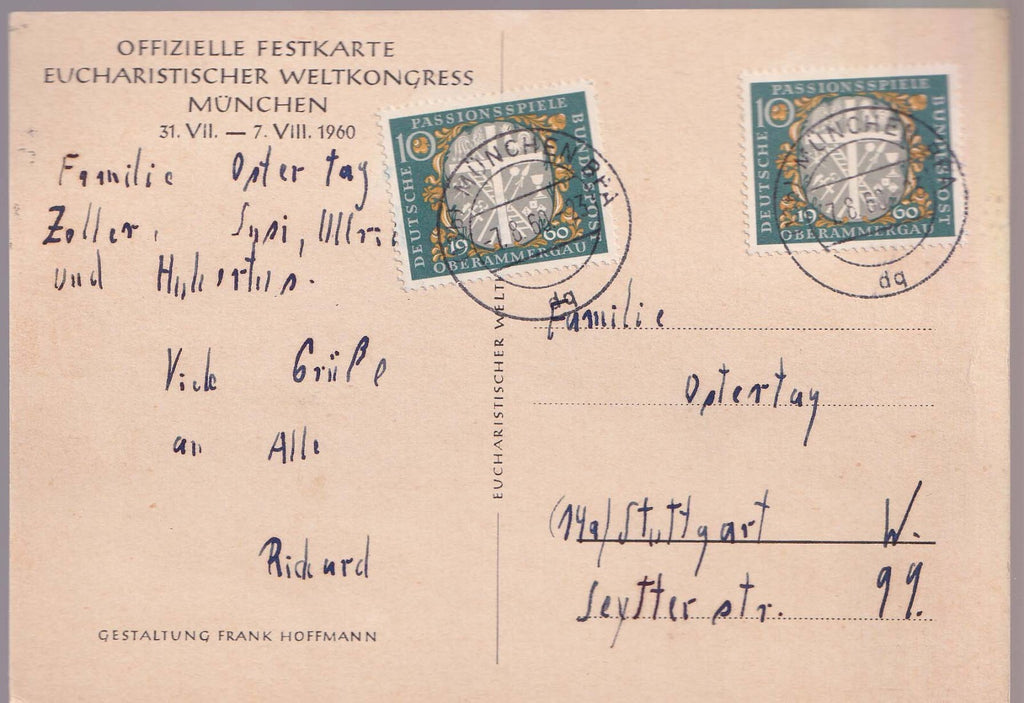 OFFIZIELLE FESTKARTE
EUCHARISTISCHER WELTKONGRESS
MÜNCHEN
31. VII. — 7. VIII. 1960
Familie Ostertag
Zoller, Susi, Ullri
und Hubertus.
Viele Grüße
an Alle
Richard
GESTALTUNG FRANK HOFFMANN
EUCHARISTISCHER WELT
10 PASSIONSSPIELE
DEUTSCHE BUNDESPOST
1960
OBERAMMERGAU
MÜNCHEN BPA
-7.8.60
dq
10 PASSIONSSPIELE
DEUTSCHE BUNDESPOST
1960
OBERAMMERGAU
MÜNCHEN
dq
Familie
Ostertag
(14a) Stuttgart W.
Seytterstr. 99.